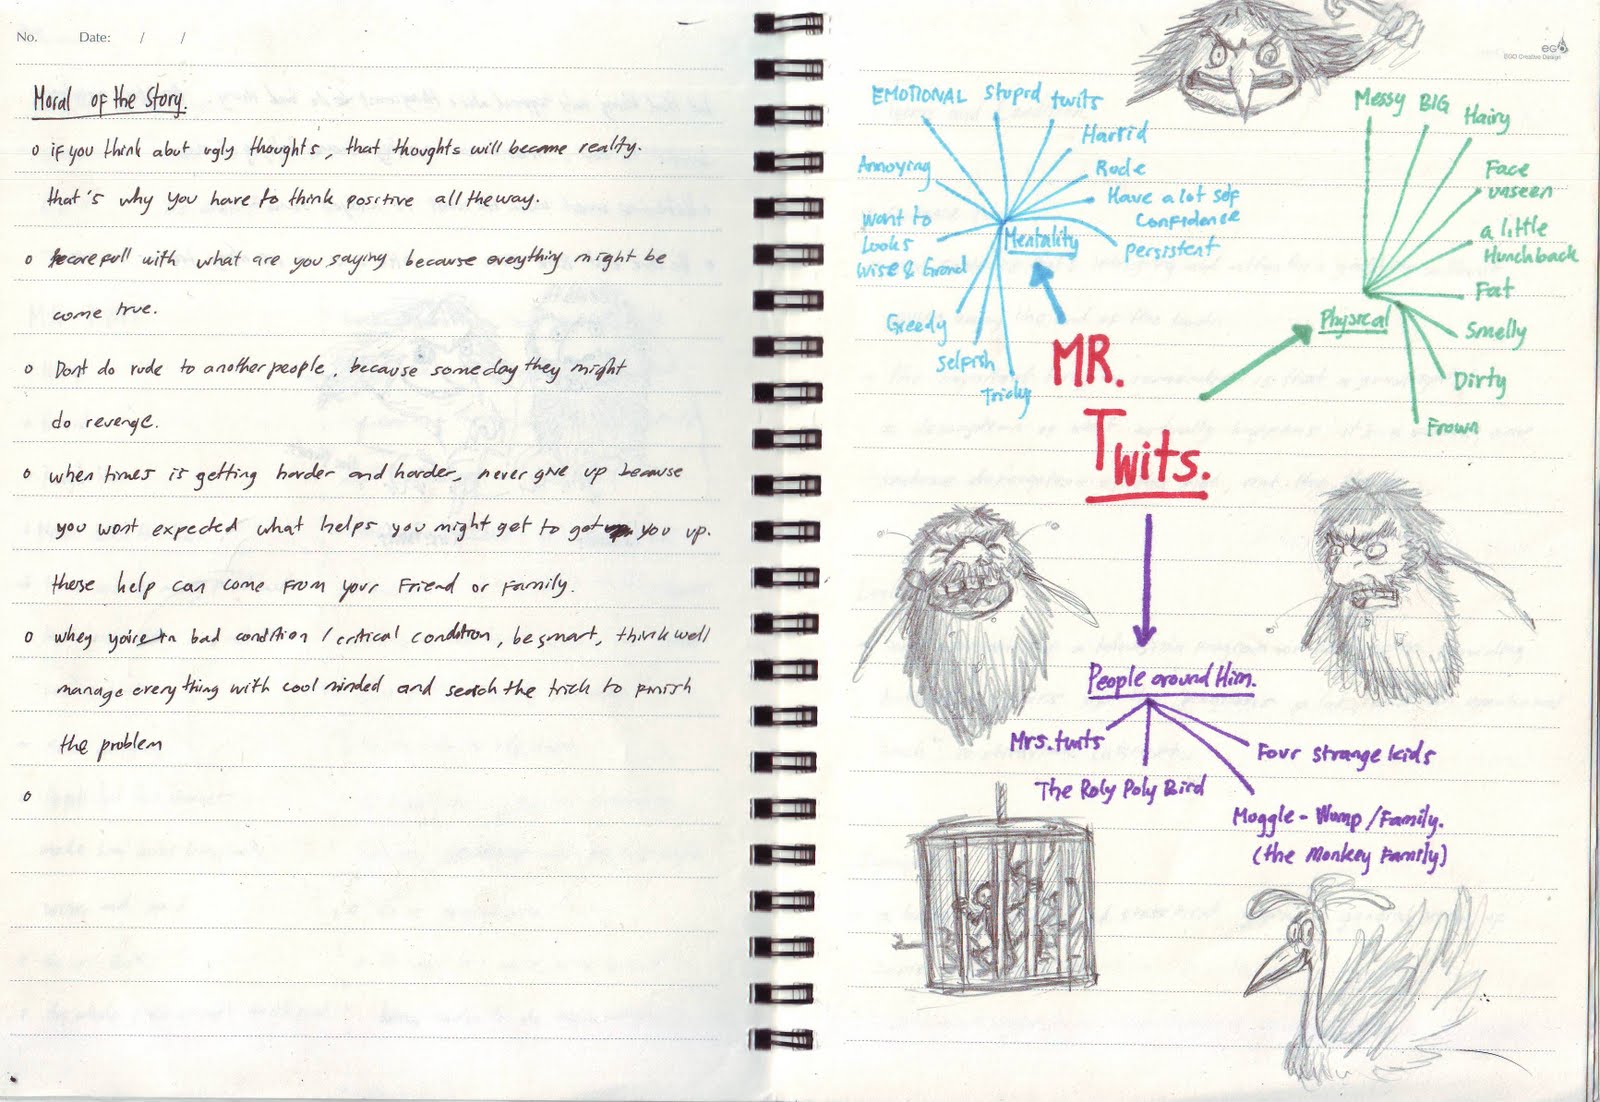 No. Date: / /
Moral of the Story.
o if you think abut ugly thoughts, that thoughts will become reality.
that's why you have to think positive all the way.
o becarefull with what are you saying because everything might be
come true.
o Dont do rude to another people, because someday they might
do revenge.
o when times is getting harder and harder, never give up because
you wont expected what helps you might get to got you up.
these help can come From your Friend or Family.
o when you're in bad condition / critical condition, be smart, think well
manage everything with cool minded and seach the trick to finish
the problem
o
eGO
EGO Creative Design
EMOTIONAL
stupid
twits
Horrid
Rude
Have a lot self
Confidence
persistent
Annoying
want to
Looks
wise & Grand
Greedy
selfish
Tricky
Mentality
Messy
BIG
Hairy
Face
unseen
a little
Hunchback
Fat
Smelly
Dirty
Frown
Physical
MR.
Twits.
People around Him.
Mrs. twits
The Roly Poly Bird
Four strange kids
Muggle - Wump / Family.
(the Monkey Family)